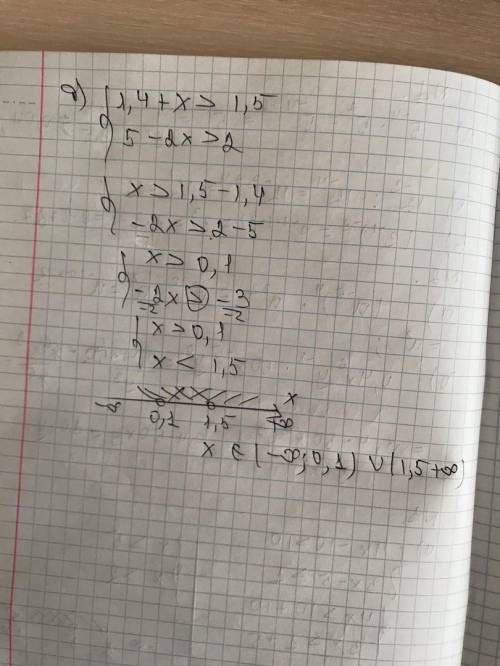 г) { 1,4 + x > 1,5
5 - 2x > 2
{ x > 1,5 - 1,4
-2x > 2 - 5
{ x > 0,1
-2x/-2 > -3/-2
{ x > 0,1
x < 1,5
-∞ 0,1 1,5 +∞ x
x ∈ (-∞; 0,1) ∪ (1,5 +∞)